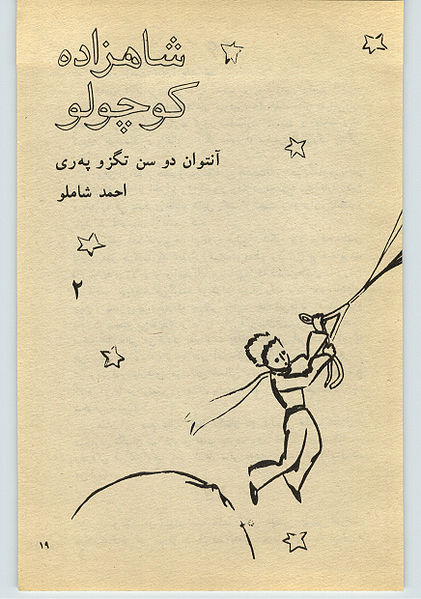 شاهزاده
کوچولو
آنتوان دو سن تگزو په‌ری
احمد شاملو
۲
۱۹